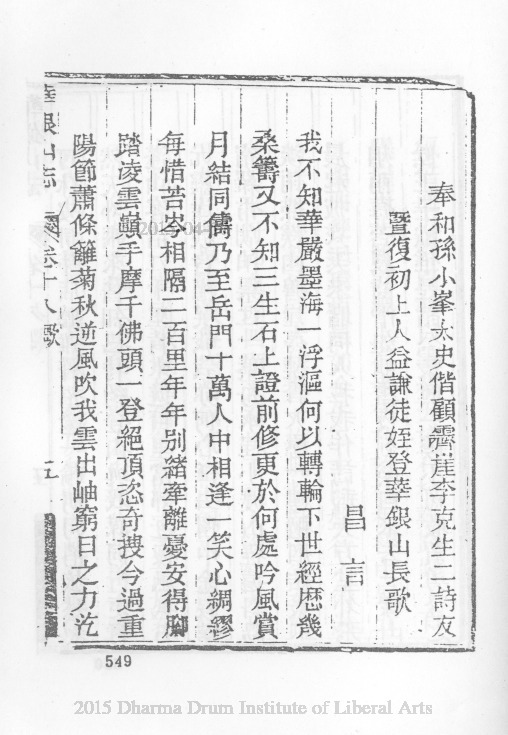 奉和孫小峯太史偕顧霽崖李克生二詩友
暨復初上人益謙徒姪登華銀山長歌
昌言
我不知華嚴墨海一浮漚何以轉輪下世經歷幾
桑籌又不知三生石上證前修更於何處吟風賞
月結同儔乃至岳門十萬人中相逢一笑心綢繆
每惜苔岑相隔二百里年年別緒牽離憂安得腳
踏凌雲巔手摩千佛頭一登絕頂恣奇搜今過重
陽節蕭條籬菊秋逆風吹我雲出岫窮日之力汔
華銀山志 卷十八 歌 五
549
2015 Dharma Drum Institute of Liberal Arts